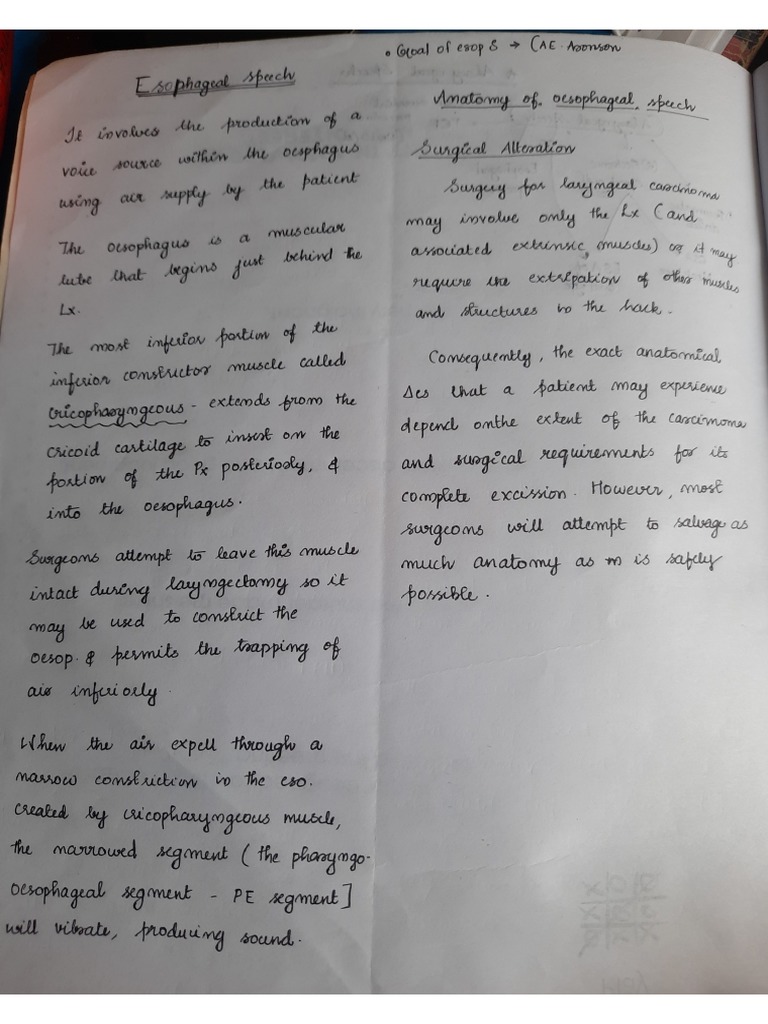 • Goal of esop S → (AE. Aronson
Esophageal speech
It involves the production of a
voice source within the oesphagus
using air supply by the patient
The oesophagus is a muscular
tube that begins just behind the
Lx.
The most inferior portion of the
inferior constrictor muscle called
cricopharyngeous - extends from the
cricoid cartilage to insert on the
portion of the Px posteriorly, &
into the oesophagus.
Surgeons attempt to leave this muscle
intact during laryngectomy so it
may be used to constrict the
oesop. & permits the trapping of
air inferiorly.
When the air expell through a
narrow constriction in the eso.
created by cricopharyngeous muscle,
the narrowed segment (the pharyngo-
oesophageal segment - PE segment]
will vibrate, producing sound.
Anatomy of oesophageal speech
Surgical Alteration
Surgery for laryngeal carcinoma
may involve only the Lx (and
associated extrinsic muscles) or it may
require the extripation of other muscles
and structures in the hack.
Consequently, the exact anatomical
Δes that a patient may experience
depend onthe extent of the carcinoma
and surgical requirements for its
complete excission. However, most
surgeons will attempt to salvage as
much anatomy as is safely
possible.